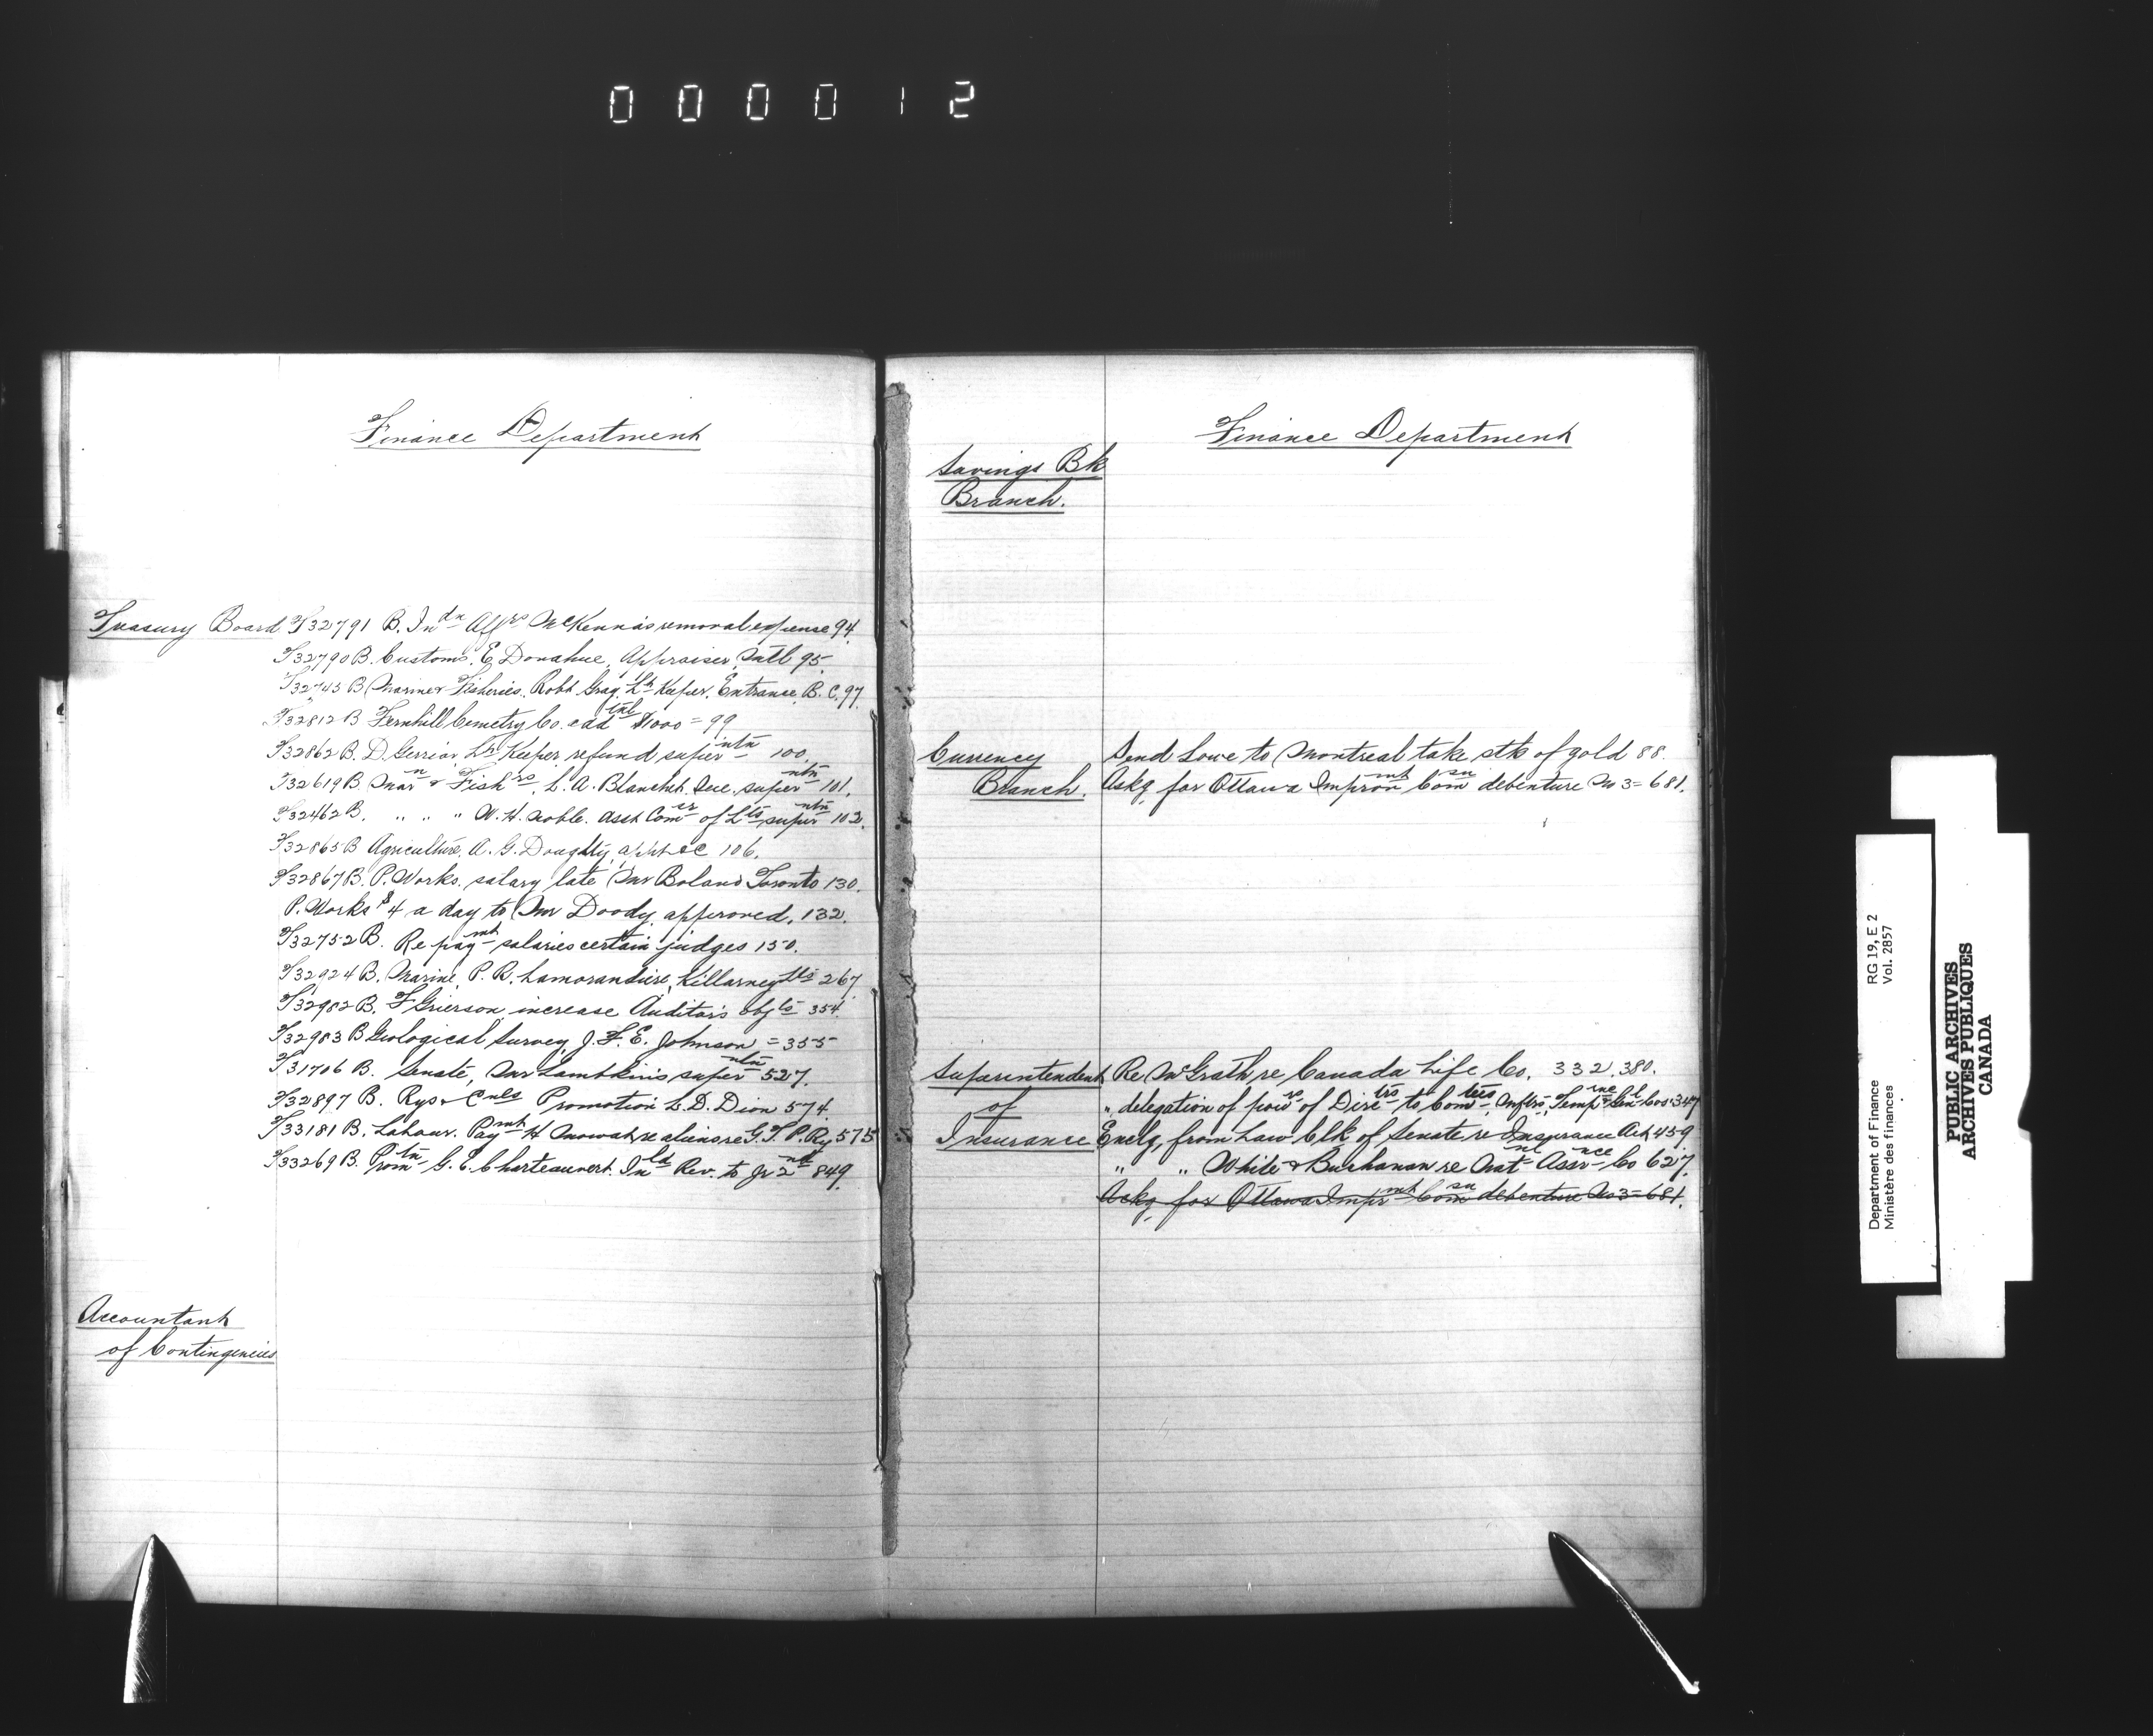 000012
Finance Department
Treasury Board T32791 B. Indn Affrs McKenna's removal expense 94.
T32790 B. Customs. E. Donahue, Appraiser, Mtl 95.
T32743 B Marine & Fisheries. Robt Gray, Lt Keeper. Entrance, B.C. 97.
T32812 B Fernhill Cemetry Co. add tnl $1000 = 99
T32862 B. D. Gerrior, Lt Keeper refund superntn 100.
T32619 B. Marn & Fishrs, L. A. Blanchet. Que. superntn 101.
T32462 B. " " " W. H. Noble. asst Comer of Lts superntn 102.
T32865 B Agriculture. A. G. Doughty, appt &c 106.
T32867 B. P. Works. salary late Mr Boland Toronto 130.
P. Works $4 a day to Mr Doody, approved. 132.
T32752 B. Re paymt salaries certain judges 150.
T32924 B. Marine, P. R. Lamorandiere, Killarney lts 267.
T32982 B. F Grierson, increase Auditor's objts 354.
T32983 B Geological Survey, J. F. E. Johnson = 355
T31706 B. Senate, Mr Lambkin's superntn 527.
T32897 B. Rys & Cnls Promotion L. D. Dion 574.
T33181 B. Labour. Paymt H Mowat re aliens re G. T. P. Ry 575
T33269 B. Promtn G. E. Charteauvert. Inld Rev. to Jr 2nd 849.
Accountant
of Contingencies
Finance Department
Savings Bk
Branch.
Currency Send Lowe to Montreal take stk of gold 88.
Branch. Askg for Ottawa Improvmt Comsn debenture No 3 = 681.
Superintendent Re McGrath re Canada Life Co. 332, 380.
of " delegation of powrs of Dirctrs to Comtees, Mnfrs, Tempnce Genl Cos 347
Insurance Enclg, from Law Clk of Senate re Insurance Act, 459
" " White & Buchanan re Natnl Assrnce Co 627.
Askg for Ottawa Imprmt Comsn debenture No 3 = 681.
RG 19, E 2
Vol. 2857
Department of Finance
Ministère des finances
PUBLIC ARCHIVES
ARCHIVES PUBLIQUES
CANADA